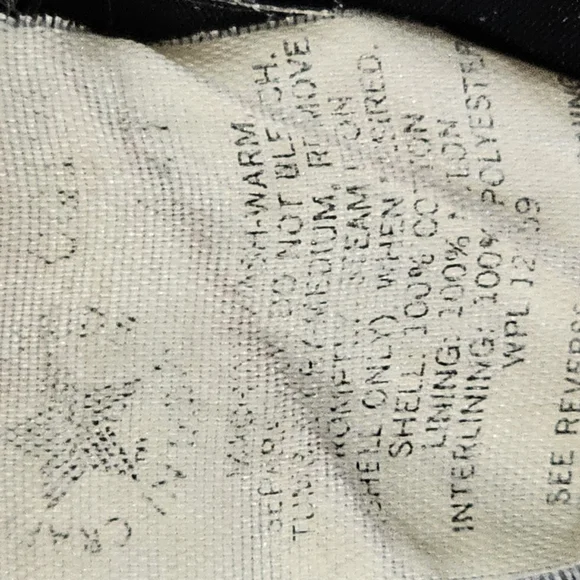 WASH-WARM
DO NOT BLEACH.
TUMBLE DRY MEDIUM, REMOVE
PROMPTLY. STEAM IRON
(SHELL ONLY) WHEN REQUIRED.
SHELL: 100% COTTON
LINING: 100% NYLON
INTERLINING: 100% POLYESTER
WPL
SEE REVERSE